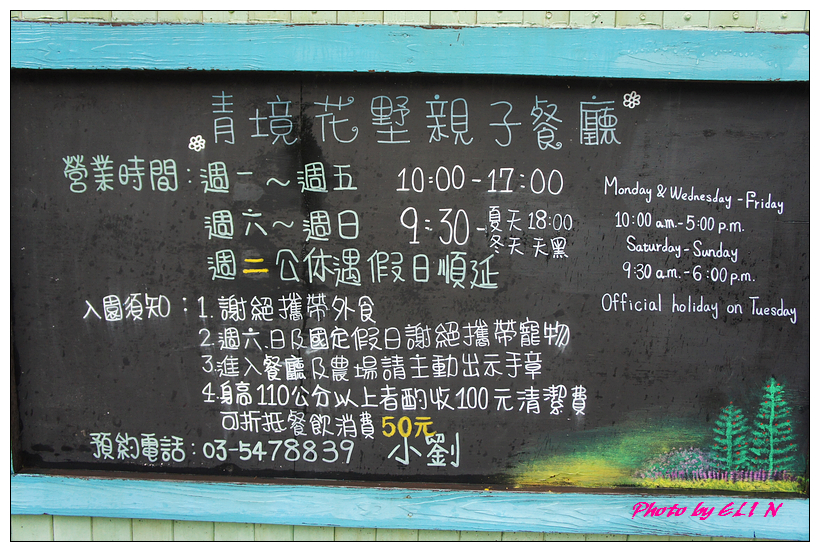 青境花墅親子餐廳
營業時間：週一～週五 10:00-17:00
週六～週日 9:30-夏天 18:00
冬天 天黑
週二公休遇假日順延
Monday & Wednesday - Friday
10:00 a.m.- 5:00 p.m.
Saturday - Sunday
9:30 a.m.- 6:00 p.m.
Official holiday on Tuesday
入園須知：1.謝絕攜帶外食
2.週六.日及國定假日謝絕攜帶寵物
3.進入餐廳及農場請主動出示手章
4.身高110公分以上者酌收100元清潔費
可折抵餐飲消費50元
預約電話：03-5478839 小劉
Photo by ELIN